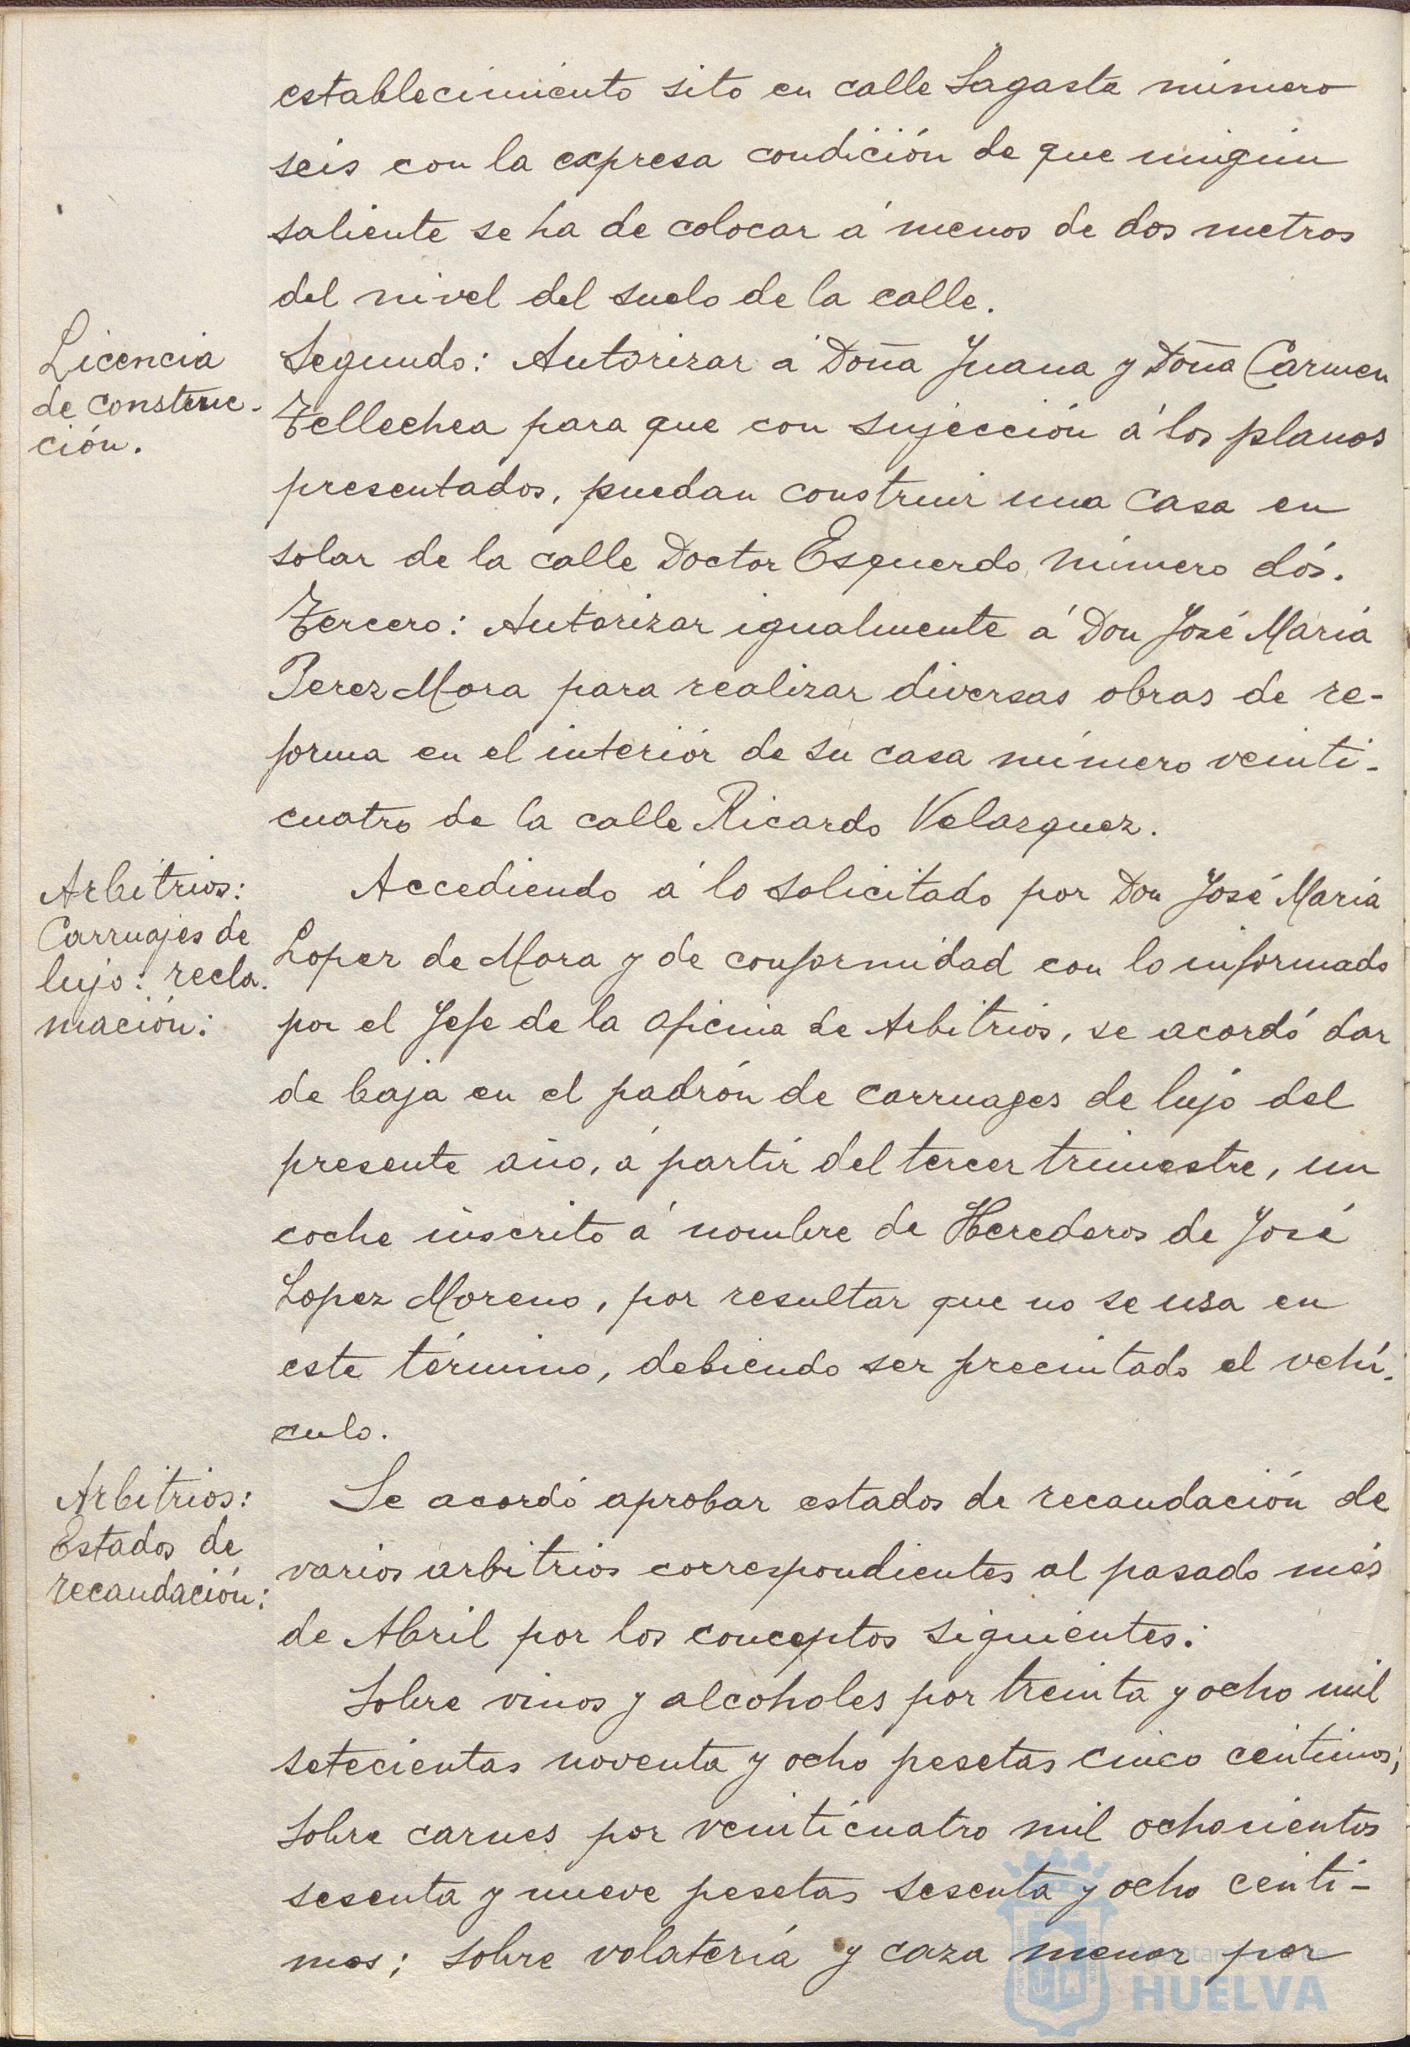 establecimiento sito en calle Sagasta número
seis con la expresa condición de que ningún
saliente se ha de colocar á menos de dos metros
del nivel del suelo de la calle.
Licencia
de construc-
ción.
Segundo: Autorizar á Doña Juana y Doña Carmen
Tellechea para que con sujección á los planos
presentados, puedan construir una casa en
solar de la calle Doctor Esquerdo número dós.
Tercero: Autorizar igualmente á Don José María
Perez Mora para realizar diversas obras de re-
forma en el interiór de su casa número veinti-
cuatro de la calle Ricardo Velazquez.
Arbitrios:
Carruajes de
lujo: recla-
mación:
Accediendo á lo solicitado por Don José María
Lopez de Mora y de conformidad con lo informado
por el Jefe de la Oficina de Arbitrios, se acordó dar
de baja en el padrón de carruages de lujo del
presente año, á partir del tercer trimestre, un
coche inscrito á nombre de Herederos de José
Lopez Moreno, por resultar que no se usa en
este término, debiendo ser precintado el vehí-
culo.
Arbitrios:
Estados de
recaudación:
Se acordó aprobar estados de recaudación de
varios arbitrios correspondientes al pasado més
de Abril por los conceptos siguientes:
Sobre vinos y alcoholes por treinta y ocho mil
setecientas noventa y ocho pesetas cinco centimos;
sobre carnes por veinticuatro mil ochocientos
sesenta y nueve pesetas sesenta y ocho centi-
mos; sobre volatería y caza menor por
Ayuntamiento de
HUELVA